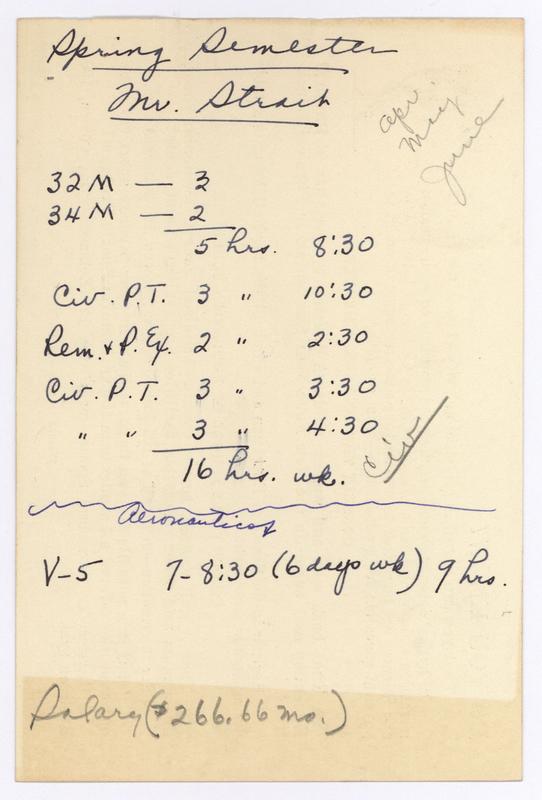 Spring Semester
Mr. Strait
Apr.
May
June
32 M — 3
34 M — 2
5 hrs. 8:30
Civ. P.T. 3 " 10:30
Rem. & P. Ex. 2 " 2:30
Civ. P.T. 3 " 3:30
" " 3 " 4:30
16 hrs. wk. Civ
Aeronautics
V-5 7-8:30 (6 days wk) 9 hrs.
Salary ($266.66 mo.)